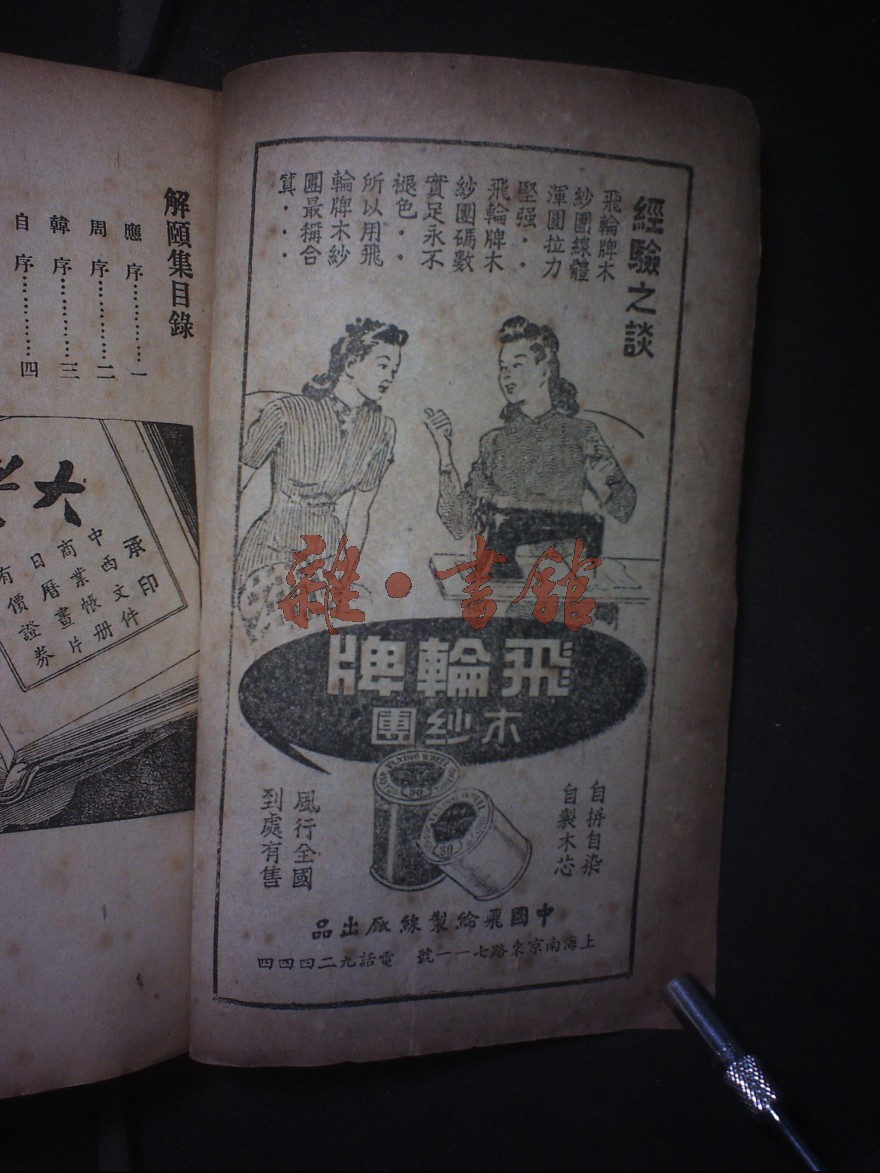 經驗之談
飛輪牌木
紗團線體
渾圓拉力
堅强..
飛輪牌木
紗團碼數
實足永不
褪色..
所以用飛
輪牌木紗
團最稱合
算...
飛輪牌
木紗團
自拼自染
自製木芯
風行全國
到處有售
FLYING WHEEL
50
80
中國飛綸製線厰出品
上海南京東路七一一號 電話九二四四四
雜·書館
解頤集目錄
應序............一
周序............二
韓序............三
自序............四
大
承印
中西文件
商業帳册
日曆畫片
有價證券